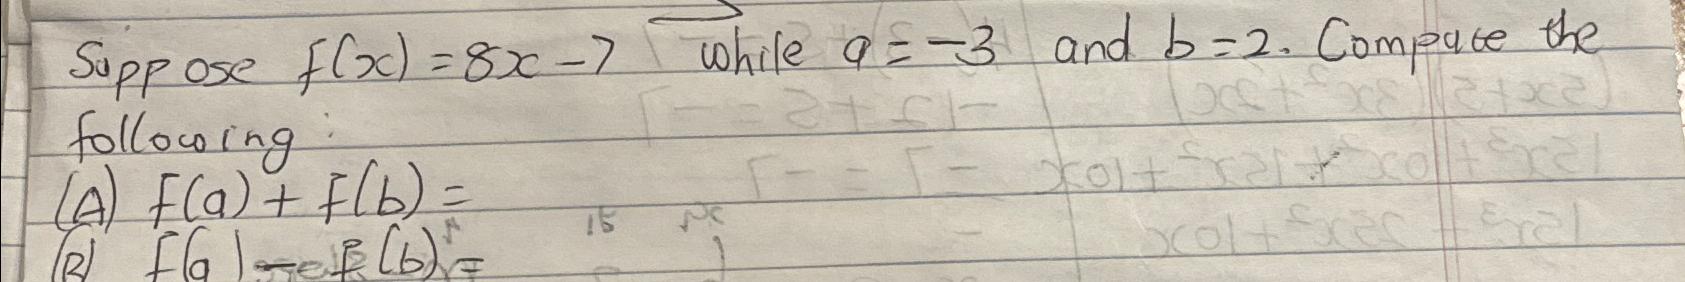 Suppose f(x) = 8x - 7 while a = -3 and b = 2. Compute the
following:
(A) f(a) + f(b) =
(B) f(a) - f(b) =